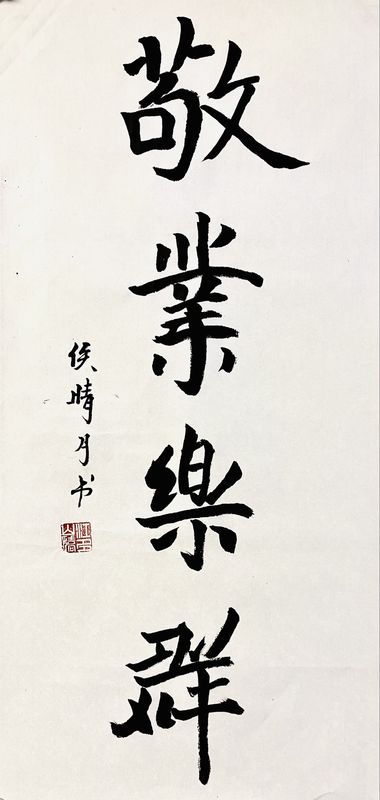 敬業樂群
侯晴月书